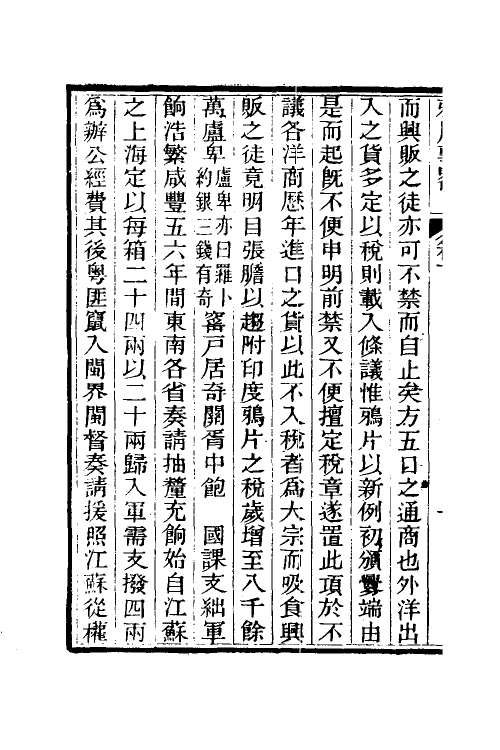 而興販之徒亦可不禁而自止矣方五口之通商也外洋出
入之貨多定以稅則載入條議惟鴉片以新例初頒釁端由
是而起既不便申明前禁又不便擅定稅章遂置此項於不
議各洋商歷年進口之貨以此不入稅者爲大宗而吸食興
販之徒竟明目張膽以趨附印度鴉片之稅歲增至八千餘
萬盧卑盧卑亦曰羅卜約銀三錢有奇窰戶居奇關胥中飽 國課支絀軍
餉浩繁咸豐五六年間東南各省奏請抽釐充餉始自江蘇
之上海定以每箱二十四兩以二十兩歸入軍需支撥四兩
爲辦公經費其後粵匪竄入閩界閩督奏請援照江蘇從權